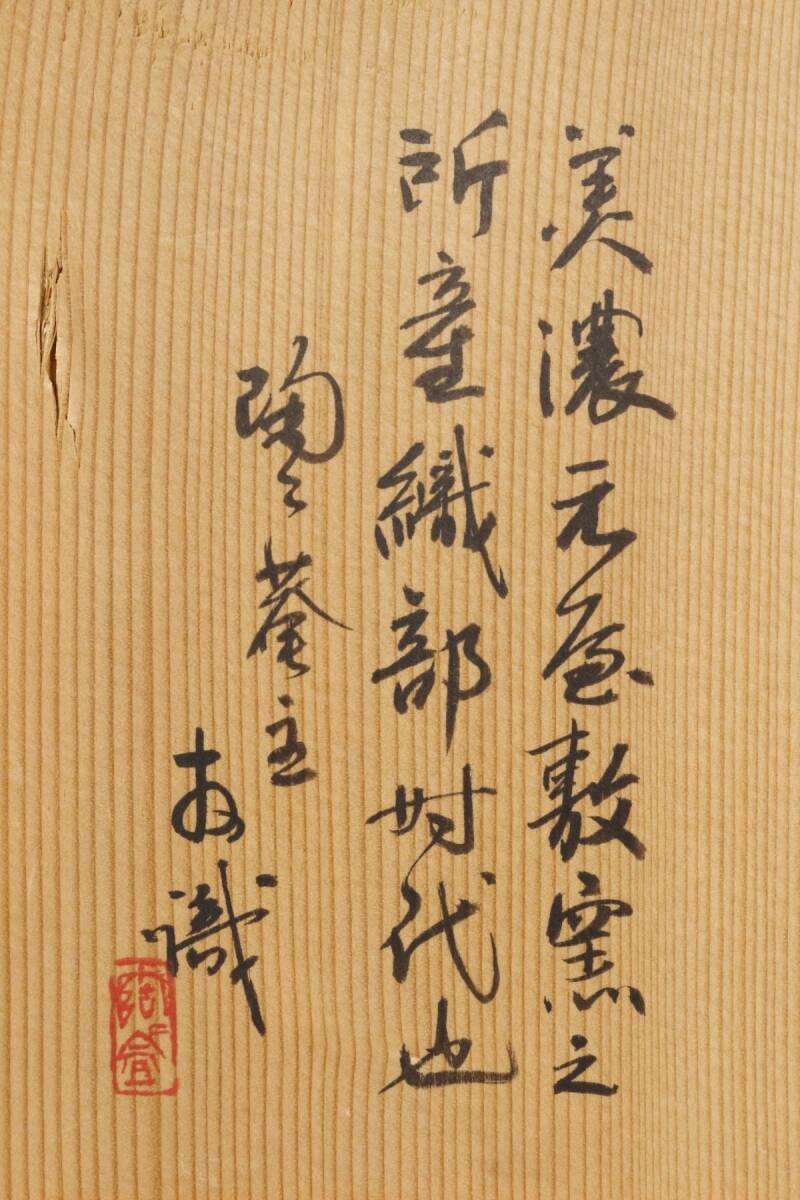 美濃元屋敷窯之
所産織部时代也
陶々菴主
識